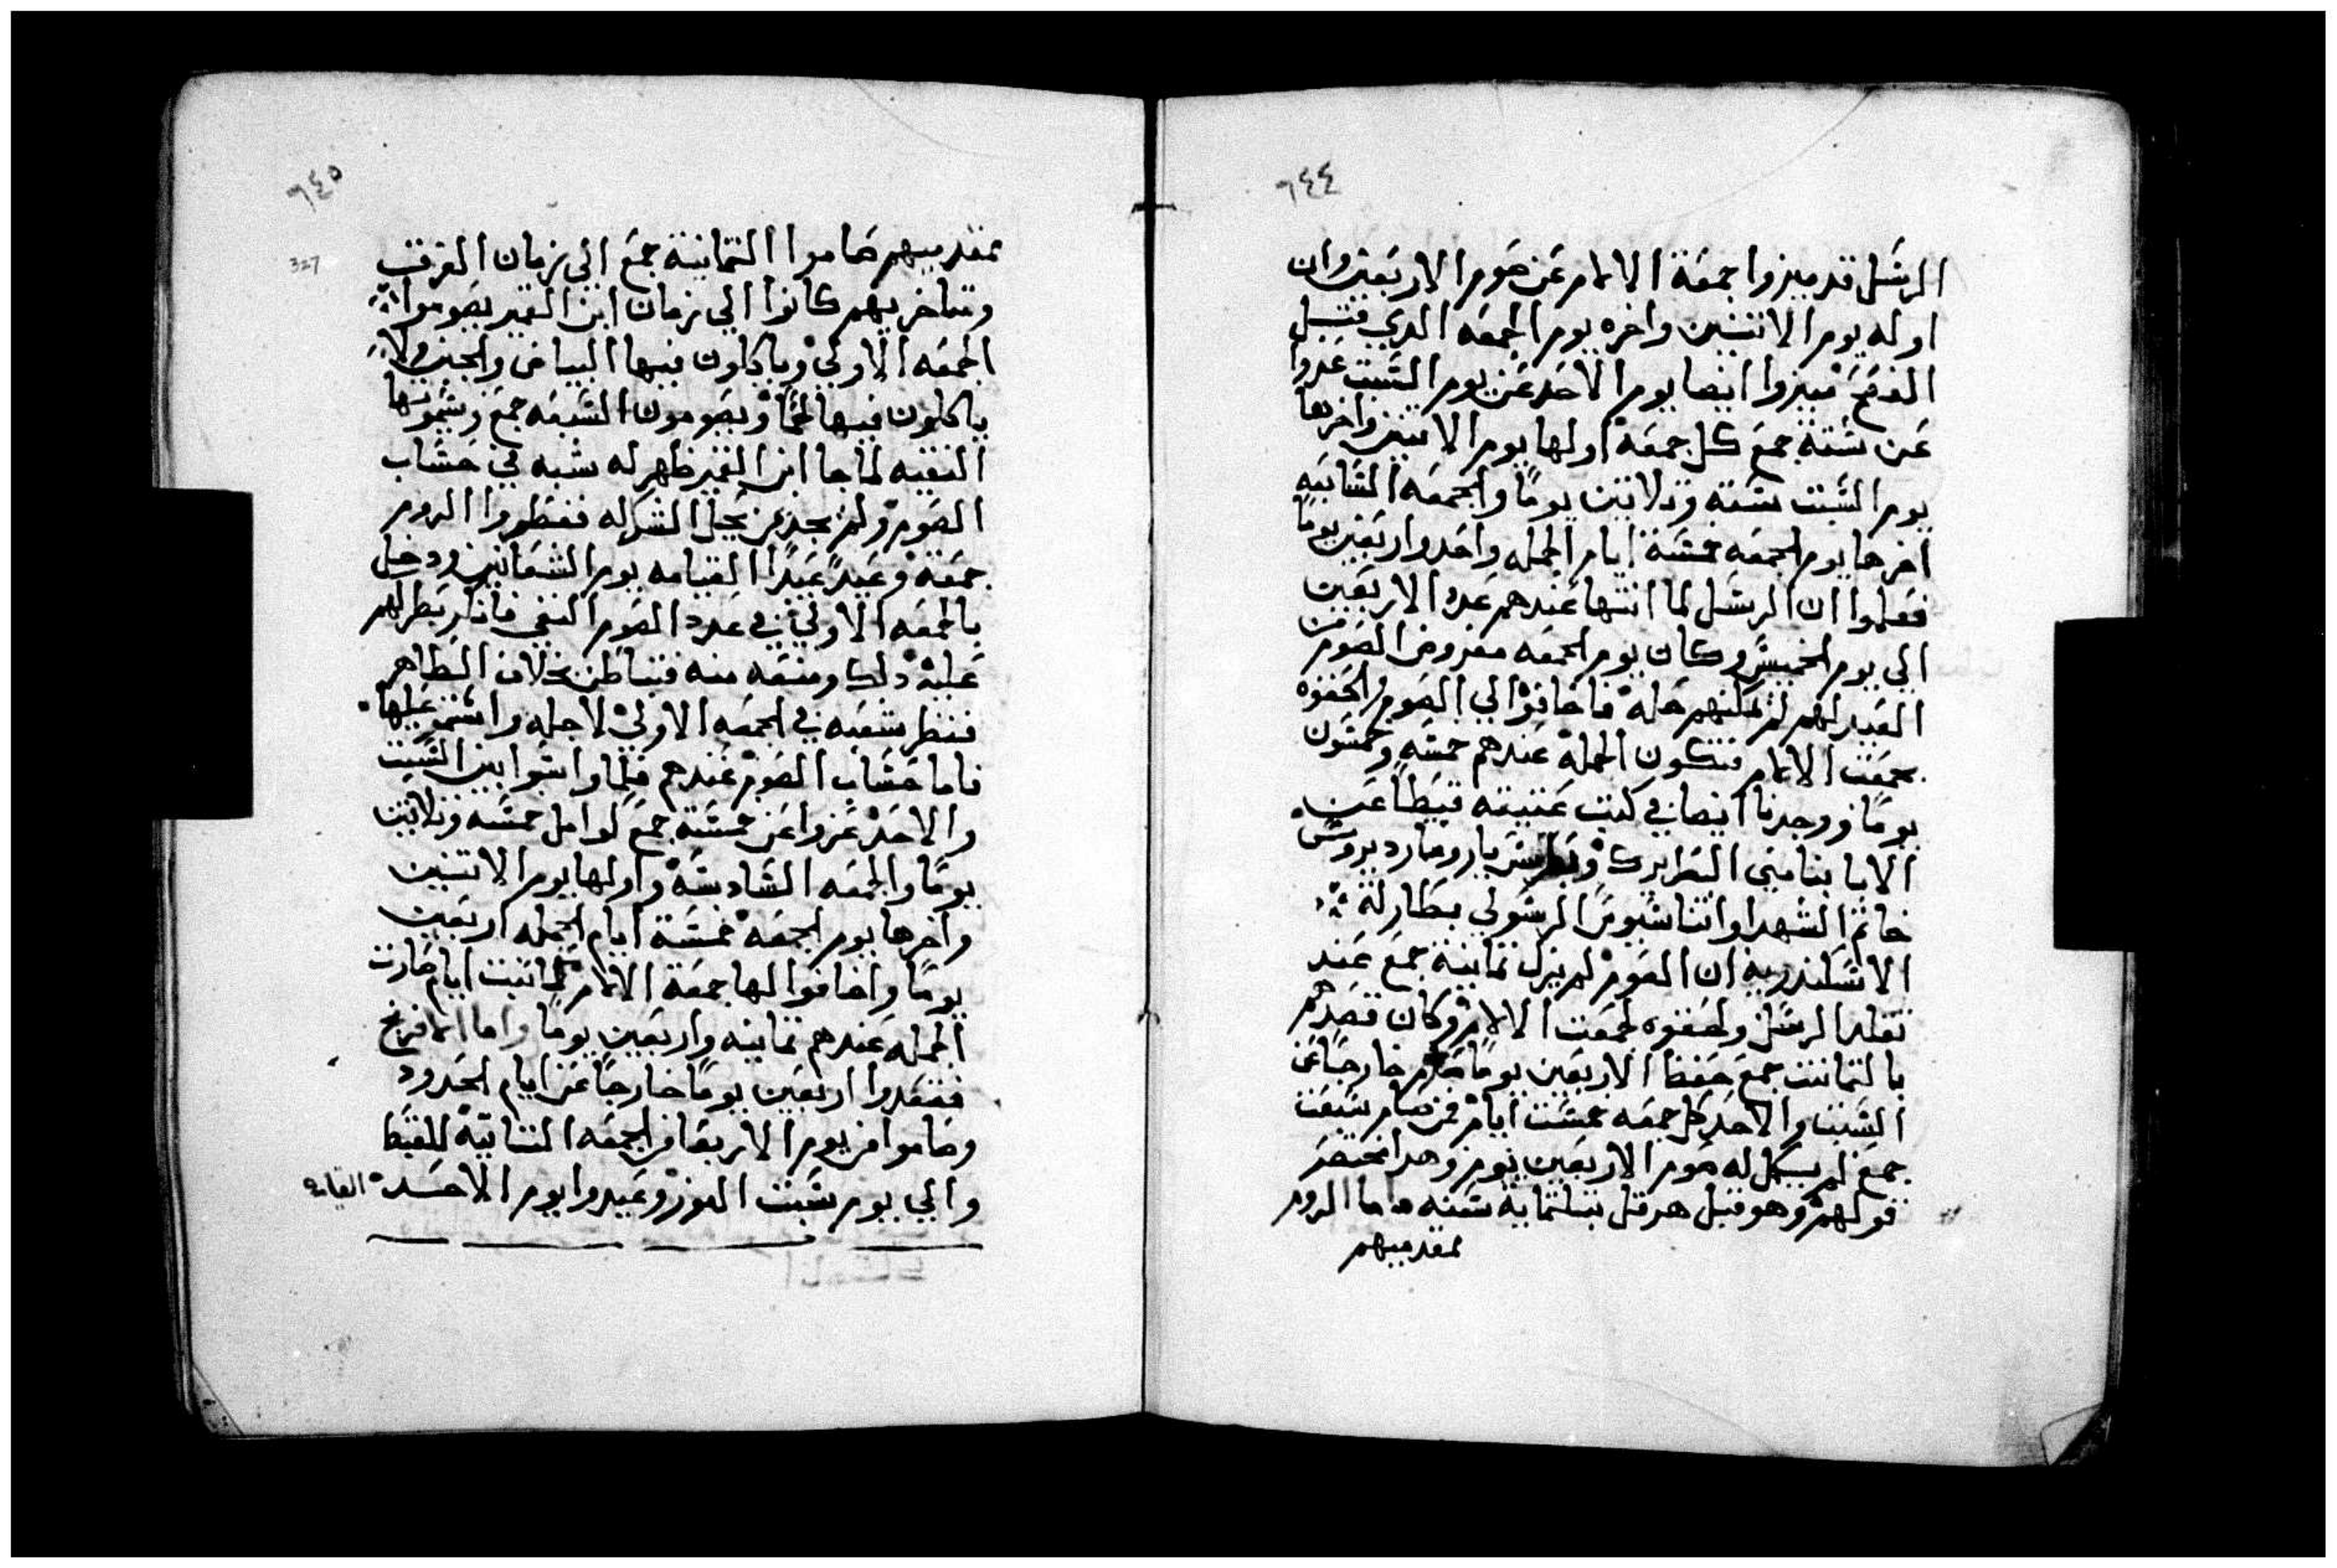 ٦٤٤
الرسل قد ميزوا جمعة الالام عن صوم الاربعين وان
اوله يوم الاتنين واخره يوم الجمعه الدي قبل
الفصح ميزوا ايضا يوم الاحد عن يوم السبت عدوا
عن ستة جمع كل جمعة اولها يوم الاتنين واخرها
يوم السبت ستة وتلاتين يوما والجمعه السابعه
اخرها يوم الجمعه خمسة ايام الجمله واحد واربعين يوما
فعلموا ان الرسل لما انتها عندهم عدد الاربعين
الي يوم الخميس وكان يوم الجمعه مفروض الصوم من
السيد لهم لم يمكنهم حله فاضافوا الي الصوم والحقوه
بجمعت الالام فتكون الجمله عندهم خمسه وخمسون
يوما ووجدنا ايضا في كتب عتيقه قبطا عن
الابا بنامين البطريرك وبطرس ياروماردبروس
خاتم الشهدا واتناسيوس الرسولي بطاركة
الاسكندريه ان الصوم لم يزل تمانية جمع عند
تقليد الرسل ولصقوه لجمعت الالام وكان قصدهم
بالتمانيت جمع حفظ الاربعين يوما خارجا عن
السبت والاحد كل جمعه خمست ايام فمن صام سبعت
جمع لم يكمل له صوم الاربعين يوم وهدا مختصر
قولهم وهو قبل هرقل بتلتماية سنه واما الروم
لمقدميهم
٦٤٥
327
لمقدميهم صاموا التمانية جمع الي زمان الفرقت
ومتاخريهم كانوا الي زمان ابن القمر يصوموا
الجمعه الاولي وياكلون فيها البياض والجبن ولا
ياكلون فيها لحما ويصومون السبعه جمع ويسموها
النقيه لما جا ابن القمر ظهر له شبه في حساب
الصوم ولم يجد من يحل الشك له ففطروا الروم
جمعة وعيد عيد القيامه يوم الشعانين ودخل
بالجمعه الاولي في عدد الصوم النقي فانكر بطركهم
عليه دلك ومنعه منه فتباطن بخلاف الظاهر
ففطر شعبه في الجمعه الاولي لاجله واستمر عليها
فاما حساب الصوم عندهم فلما واسوا بين السبت
والاحد عزوا عن خمسة جمع كوامل خمسه وتلاتين
يوما والجمعه السادسه واولها يوم الاتنين
واخرها يوم الجمعه خمسة ايام الجمله اربعين
يوما واضافوا لها جمعة الالام تمانيت ايام صارت
الجمله عندهم تمانيه واربعين يوما واما الافرنج
فقعدوا اربعين يوما خارجا عن ايام الحدود
وصاموا من يوم الاربعا من الجمعه التانية للقبط
والي يوم سبت النور وعيدوا يوم الاحد